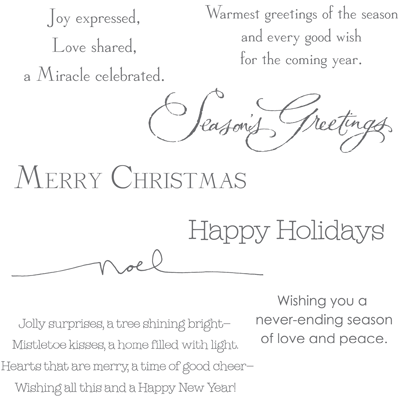 Joy expressed,
Love shared,
a Miracle celebrated.
Warmest greetings of the season
and every good wish
for the coming year.
Season's Greetings
MERRY CHRISTMAS
Happy Holidays
noel
Wishing you a
never-ending season
of love and peace.
Jolly surprises, a tree shining bright—
Mistletoe kisses, a home filled with light
Hearts that are merry, a time of good cheer—
Wishing all this and a Happy New Year!